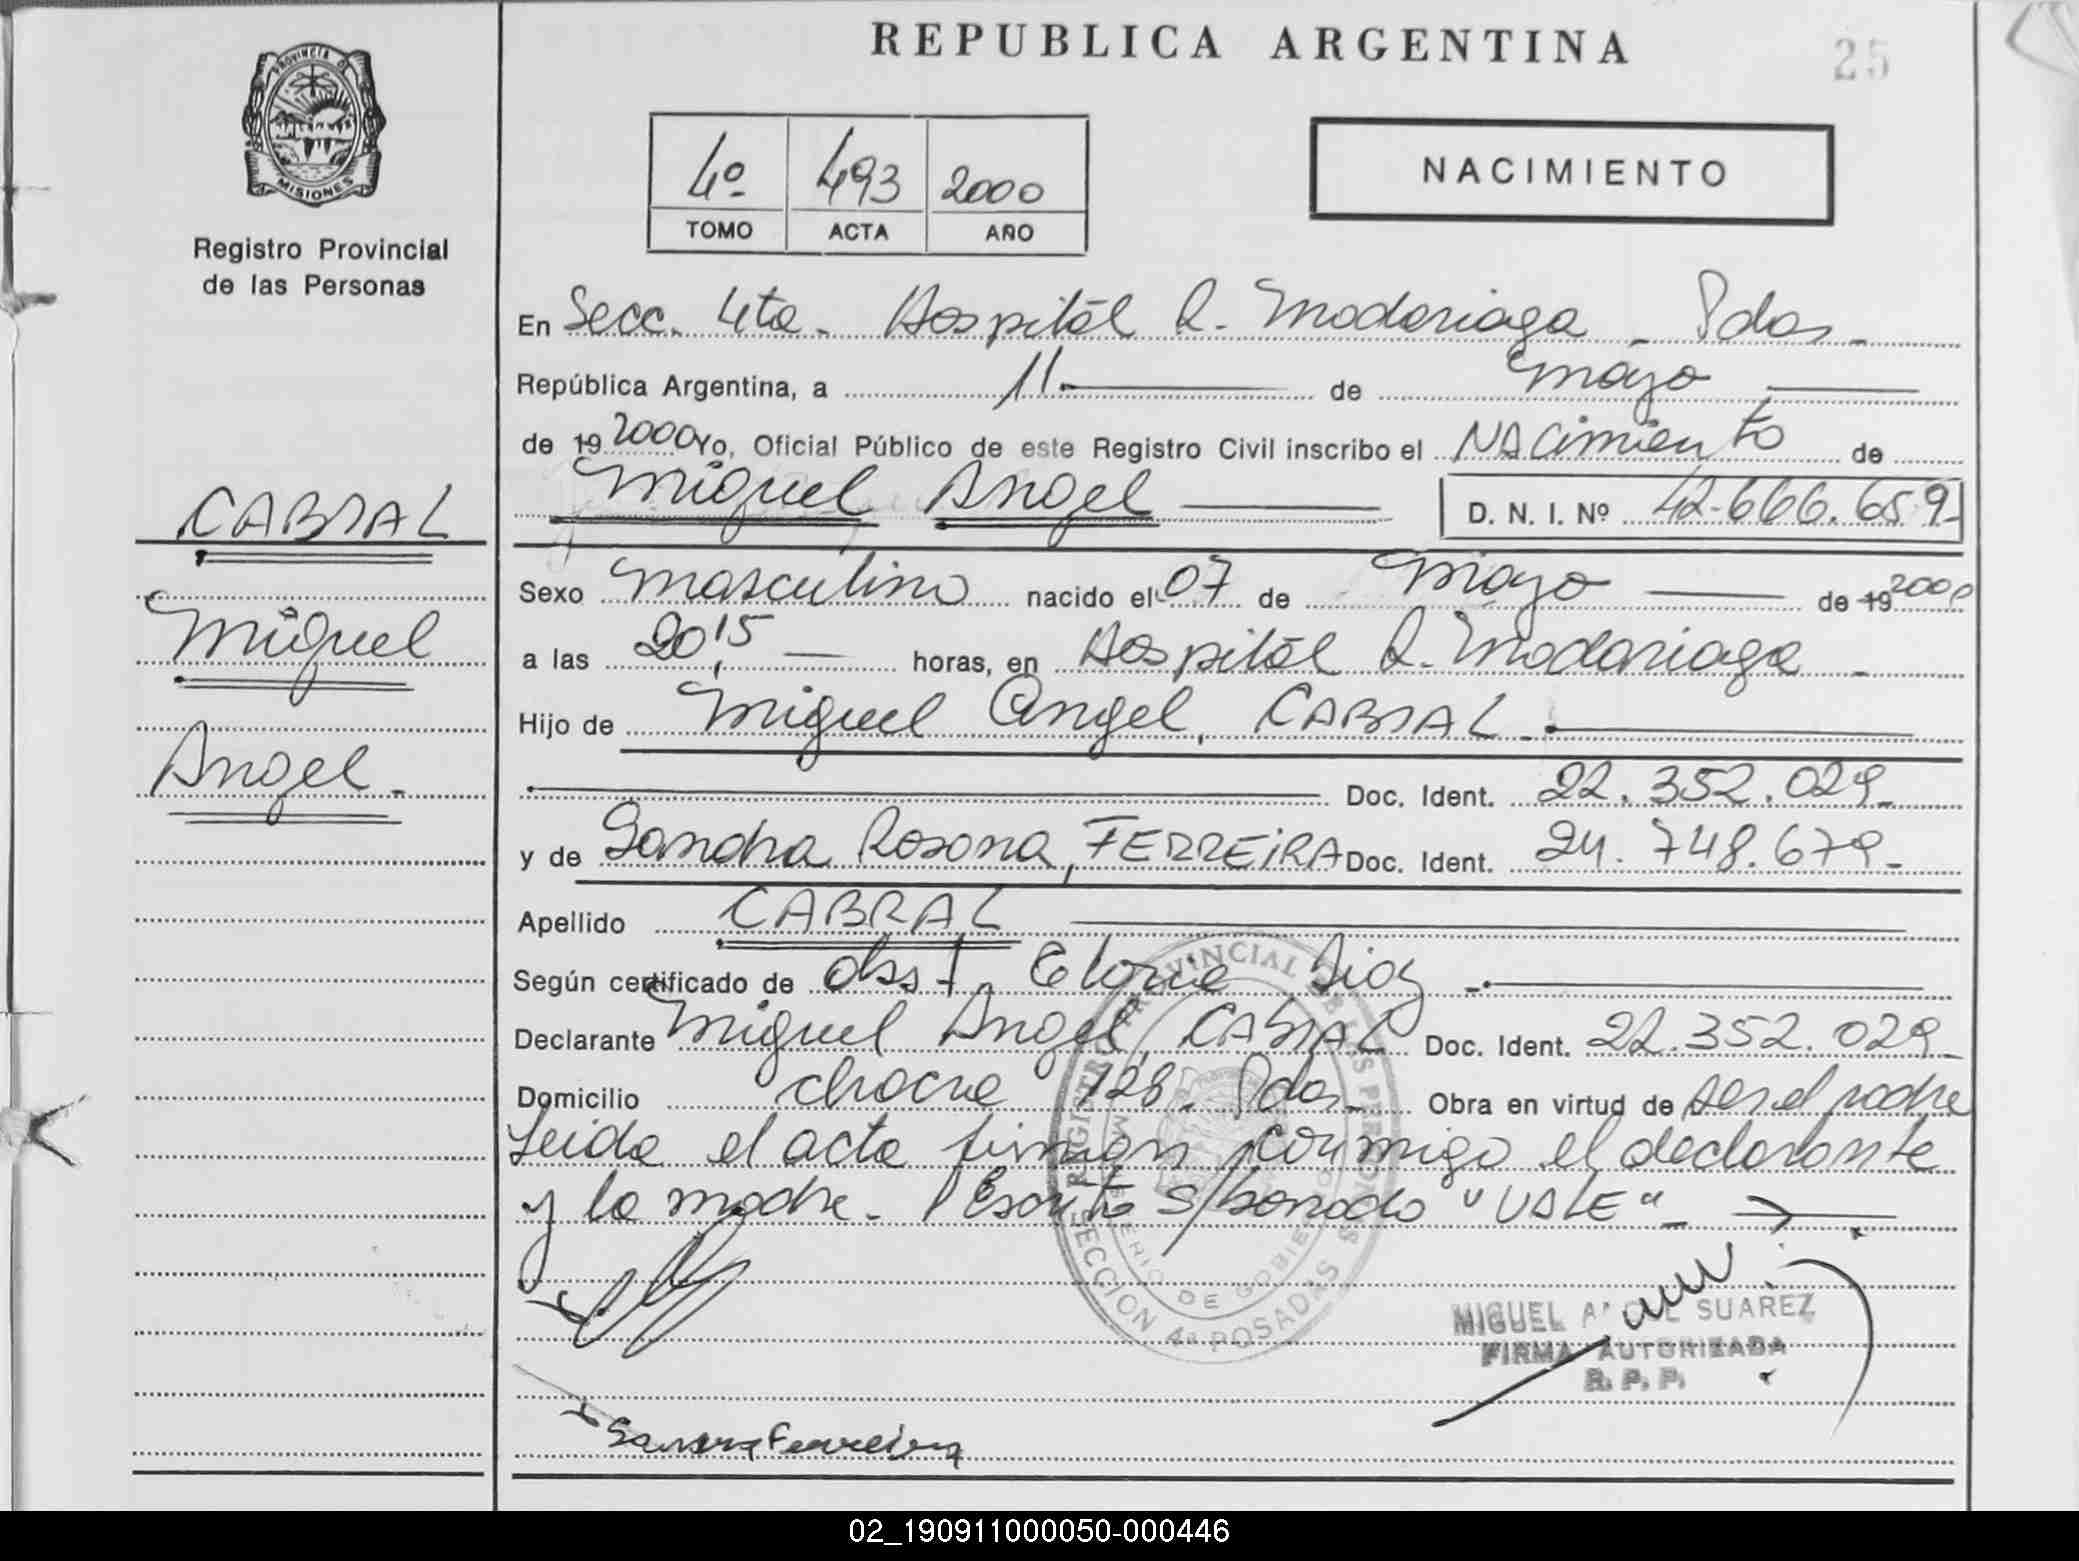 REPUBLICA ARGENTINA
25
PROVINCIA DE
MISIONES
Registro Provincial
de las Personas
4º 493 2000
TOMO ACTA AÑO
NACIMIENTO
En Secc. 4ta. Hospital R. Madariaga - Pdas -
República Argentina, a 11. de mayo
de 19 2000 Yo, Oficial Público de este Registro Civil inscribo el NACimiento de
Miguel Angel D. N. I. Nº 42.666.659-
CABRAL
Miguel
Angel -
Sexo masculino nacido el 07 de mayo de 19 2000
a las 20,15 horas, en Hospital R. Madariaga -
Hijo de Miguel Angel, CABRAL -
Doc. Ident. 22.352.029-
y de Sandra Rosana, FERREIRA Doc. Ident. 24.748.679-
Apellido CABRAL
Según certificado de obst. Diaz -
Declarante Miguel Angel, CABRAL Doc. Ident. 22.352.029-
Domicilio 128. Pdas - Obra en virtud de ser el padre
Leida el acta firman conmigo el declarante
y la madre - Escrito s/borrado "VALE" -
REGISTRO PROVINCIAL DE LAS PERSONAS
MINISTERIO DE GOBIERNO
SECCION 4ª POSADAS
MIGUEL ANGEL SUAREZ
FIRMA AUTORIZADA
R. P. P.
Sandra Ferreira
02_190911000050-000446